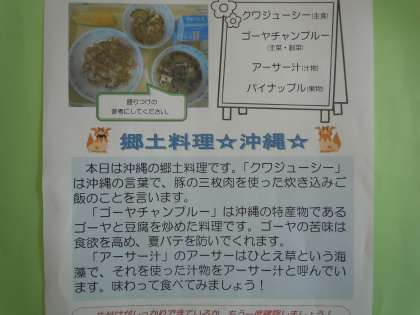 クワジューシー(主食)
ゴーヤチャンプルー
(主菜・副菜)
アーサー汁(汁物)
パイナップル(果物)
盛りつけの
参考にしてください。
郷土料理☆沖縄☆
本日は沖縄の郷土料理です。「クワジューシー」
は沖縄の言葉で、豚の三枚肉を使った炊き込みご
飯のことを言います。
「ゴーヤチャンプルー」は沖縄の特産物である
ゴーヤと豆腐を炒めた料理です。ゴーヤの苦味は
食欲を高め、夏バテを防いでくれます。
「アーサー汁」のアーサーはひとえ草という海
藻で、それを使った汁物をアーサー汁と呼んでい
ます。味わって食べてみましょう！